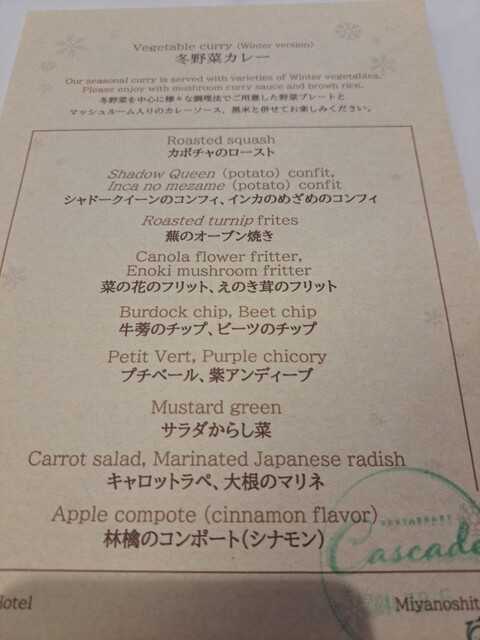 Vegetable curry (Winter version)
冬野菜カレー
Our seasonal curry is served with varieties of Winter vegetables.
Please enjoy with mushroom curry sauce and brown rice.
冬野菜を中心に様々な調理法でご用意した野菜プレートと
マッシュルーム入りのカレーソース、黒米と併せてお楽しみください。
Roasted squash
カボチャのロースト
Shadow Queen (potato) confit,
Inca no mezame (potato) confit
シャドークイーンのコンフィ、インカのめざめのコンフィ
Roasted turnip frites
蕪のオーブン焼き
Canola flower fritter,
Enoki mushroom fritter
菜の花のフリット、えのき茸のフリット
Burdock chip, Beet chip
牛蒡のチップ、ビーツのチップ
Petit Vert, Purple chicory
プチベール、紫アンディーブ
Mustard green
サラダからし菜
Carrot salad, Marinated Japanese radish
キャロットラペ、大根のマリネ
Apple compote (cinnamon flavor)
林檎のコンポート(シナモン)
RESTAURANT
Cascade
Hotel
Miyanoshit